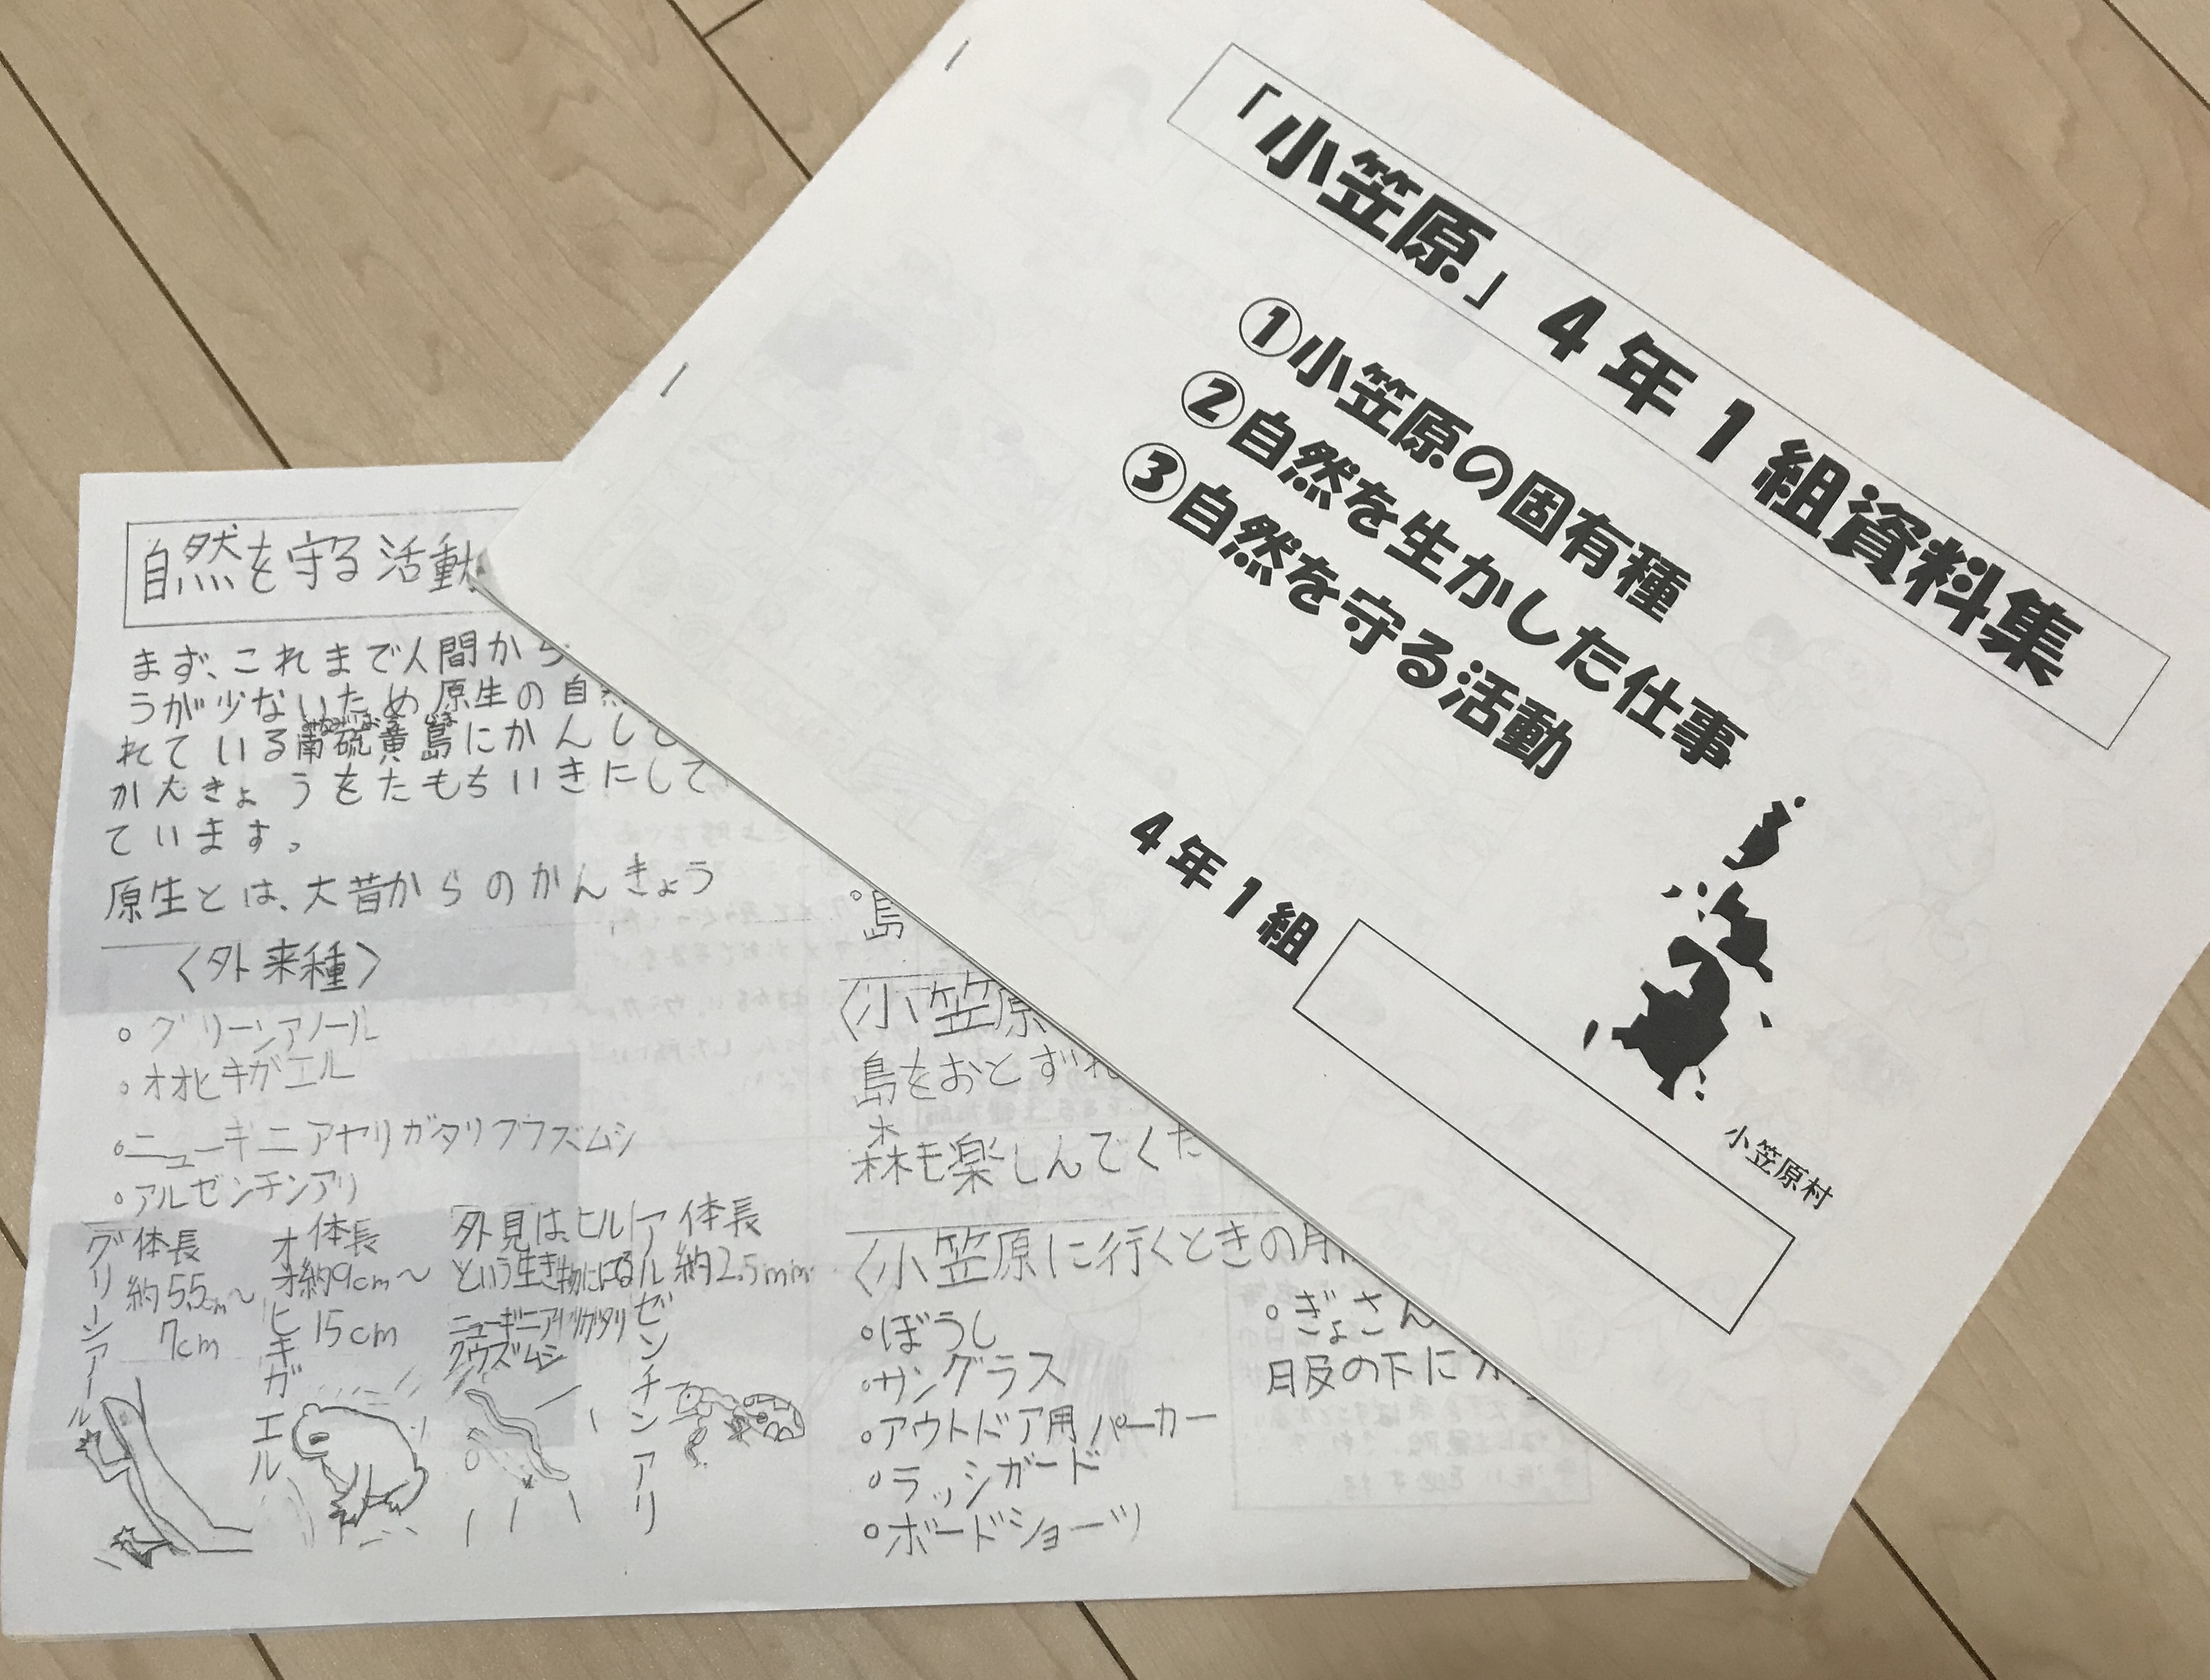 「小笠原」4年1組資料集
①小笠原の固有種
②自然を生かした仕事
③自然を守る活動
4年1組
小笠原村
自然を守る活動
まず、これまで人間から
うが少ないため原生の自然
みなみいおうとう
れている南硫黄島にかんして
かんきょうをたもちいきにして
ています。
原生とは、大昔からのかんきょう
〈外来種〉
○グリーンアノール
○オオヒキガエル
○ニューギニアヤリガタリクウズムシ
○アルゼンチンアリ
グリーンアノール
体長
約5.5cm〜
7cm
オオヒキガエル
体長
約9cm〜
15cm
外見はヒル
という生き物ににてる
ニューギニアヤリガタリ
クウズムシ
アルゼンチンアリ
体長
約2.5mm
○島
〈小笠原
島をおとずれ
森も楽しんでくだ
〈小笠原に行くときの服
○ぼうし
○サングラス
○アウトドア用パーカー
○ラッシガード
○ボードショーツ
○ぎょさん
服の下に水